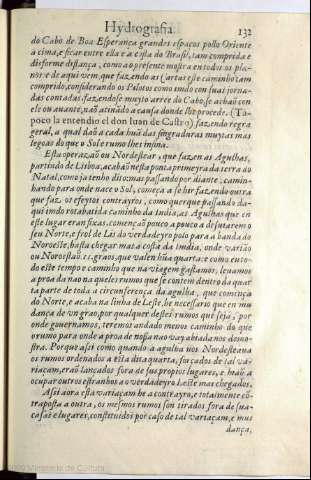 Hydrografia. 132
do Cabo de Boa Esperança grandes espaços pollo Oriente
acima, e ficar entre ella e a costa do Brasil, tam comprida e
disforme distança, como a o presente mostra en todos os pla-
nos: e de aqui vem, que fazendo as Cartas este caminho tam
comprido, considerando os Pilotos como indo con suas jornа-
das contadas, fazendose muyto arree do Cabo, se achaõ con
elle ou avante, naõ atinaõ o a causa donde lhe procede. (Ta-
poco la entendio el don Iuan de Castro) fazendo regra
geral, a qual daõ a cada huã das singraduras muytas mas
legoas do que o Sol e rumo lhes insina.
Esta operazaõ ou Nordestear, que fazen as Agulhas,
partindo de Lisboa, acabaõ nesta ponta primeyra da terra do
Natal, como ja tenho dito: mas passando por diante, camin-
hando para onde nace o Sol, começa a se hir fazendo outra
que faz os efeytos contrayros, como quer que passando da-
qui indo rota batida caminho da India, as Agulhas que en
este lugar eran fixas, començaõ pouco a pouco a desutarem o
seu Norte, e frol de Lis do verdadeyro polo para a banda do
Noroeste, hasta chegar mata costa da India, onde variaõ
ou Noroesteaõ .11. graos, que valen hũa quarta: e como en to-
do este tempo e caminho que na viagem gastamos, levamos
a proa da nao na queles rumos que se contem dentro da quar
ta parte de toda a circunferença da agulha, que começa
do Norte, e acaba na linha de Leste, he necessario que en mu
dança de vn grao, por qualquer destes rumos que seja, por
onde governamos, teremos andado menos caminho do que
o rumo para onde a proa de nossa nao vay abiada nos demo-
stra. Por que assi como quando a agulha nos Nordesteava
os rumos ordenados a esta dita quarta, forçados de tal va-
riaçam, eraõ lançados fora de sus propios lugares, e hiaõ a
ocupar outros estranhos a o verdadeyro Leste mas chegados.
Assi aora esta variaçam he a contrayro, e totalmente con-
traposta a outra, os mesmos rumos son tirados fora de sua-
casas e lugares, constituidos por caso de tal variaçam, e mus
dança,
Ministerio de Cultura